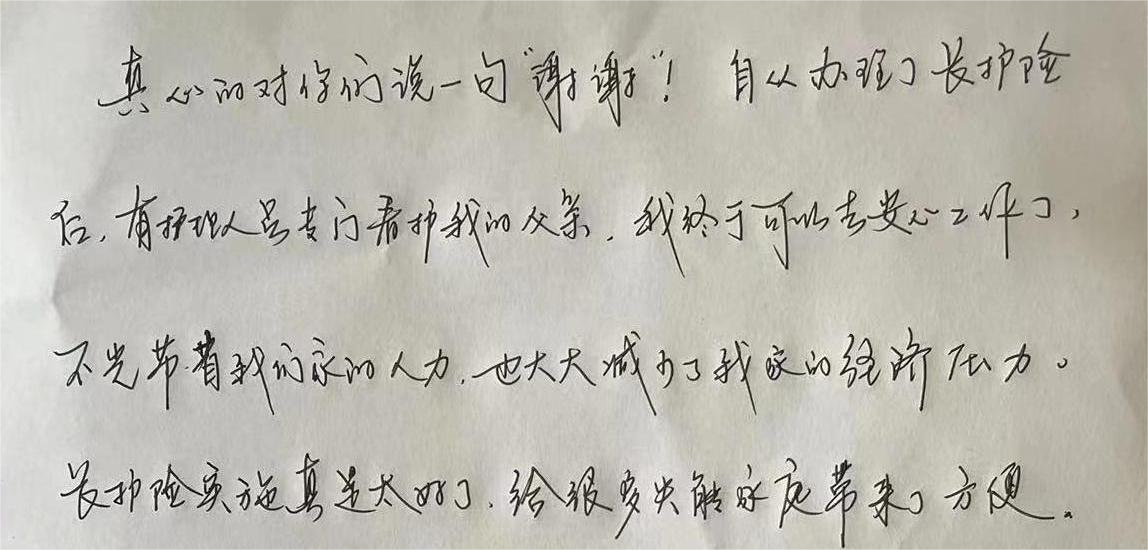 真心的对你们说一句“谢谢”！自从办理了长护险
后，有护理人员专门看护我的父亲，我终于可以去安心工作了，
不光节省我们家的人力，也大大减少了我家的经济压力。
长护险实施真是太好了，给很多失能家庭带来了方便。